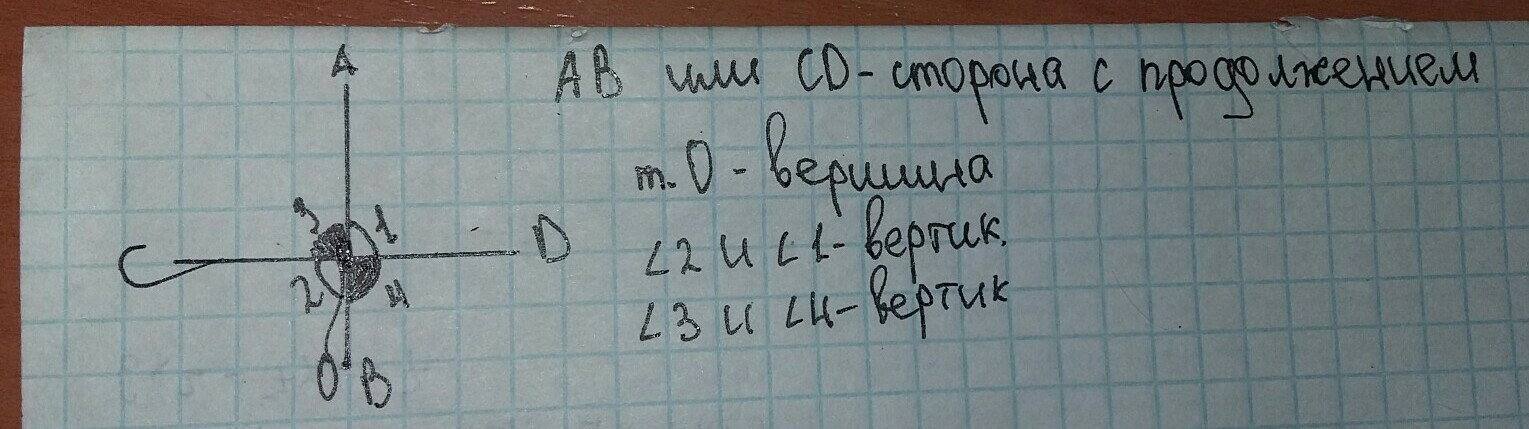 A
AB или CD - сторона с продолжением
т. О - вершина
3 1
C D
∠2 и ∠1 - вертик.
2 4
∠3 и ∠4 - вертик
O B